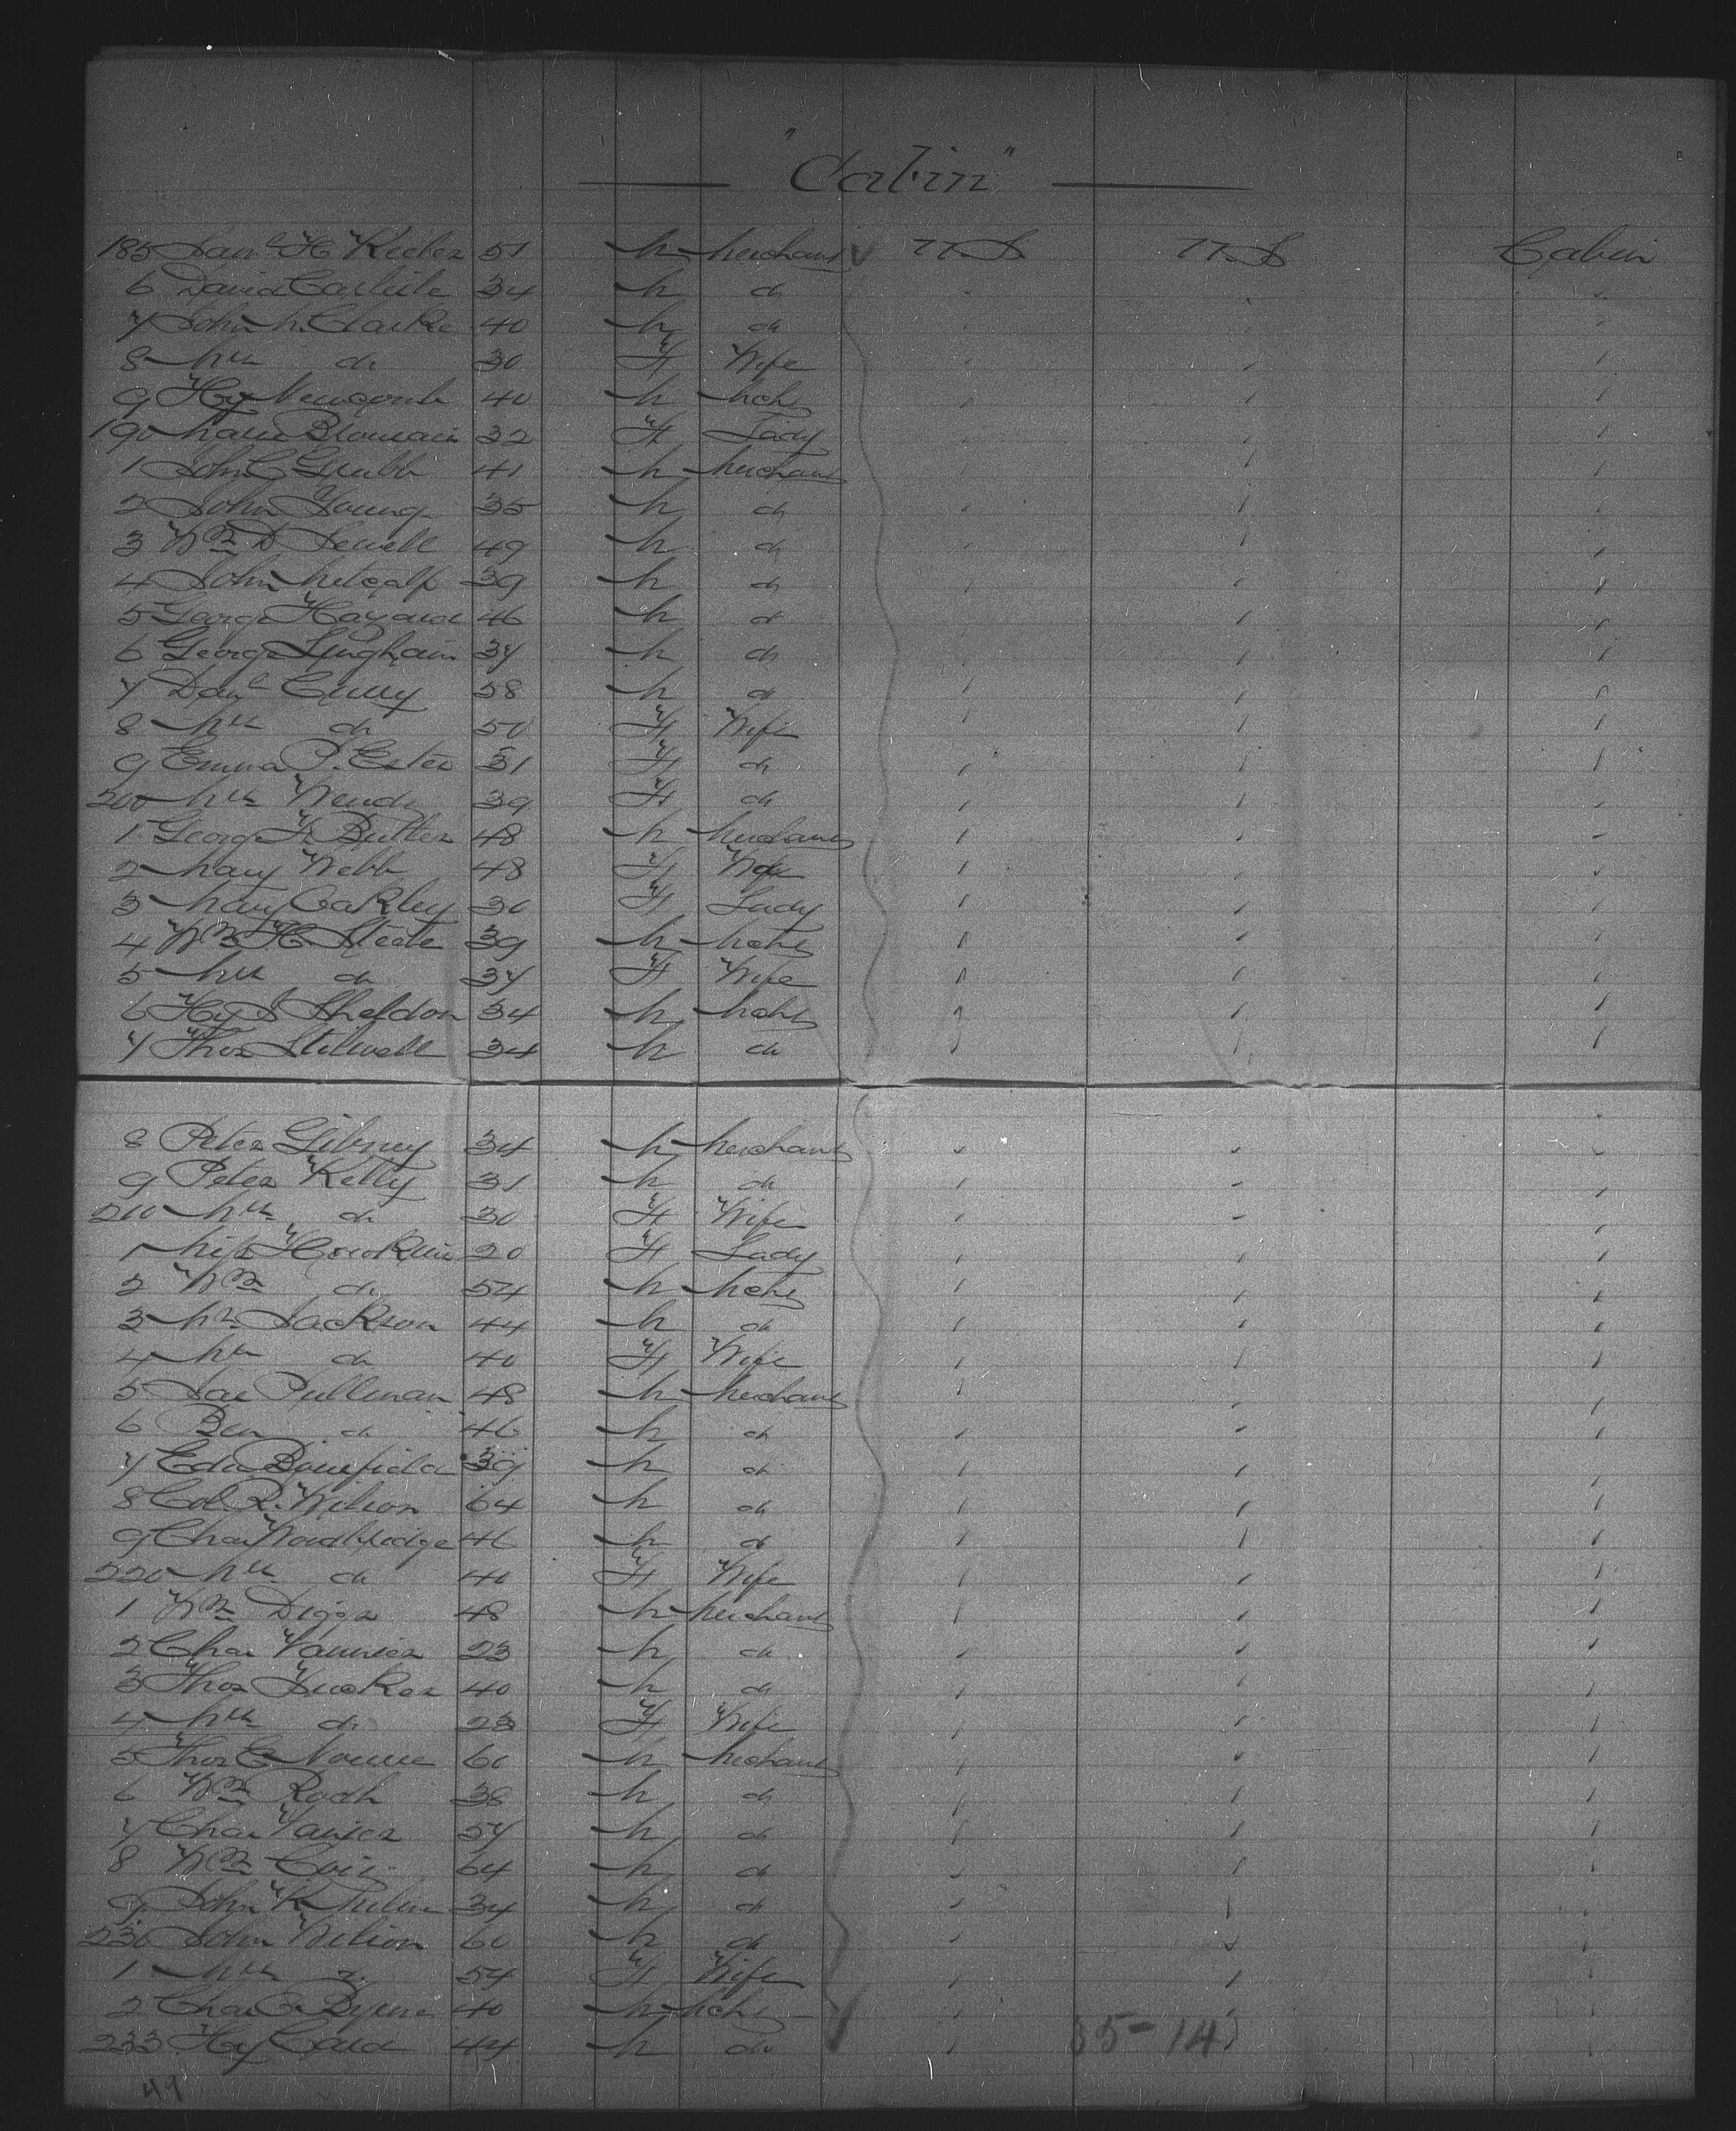 "Cabin"
185 Saml H Keeler 51 M Merchant U.S U.S Cabin
6 David Carlisle 34 M do
7 John M. Clarke 40 M do
8 Mrs do 30 F Wife
9 Hy Newcomb 40 M Mcht
190 32 F Lady
1 John C Grubb 41 M Merchant
2 John Young 35 M do
3 Wm D Sewell 49 M do
4 John Metcalf 39 M do
5 George Hayard 46 M do
6 George Lingham 37 M do
7 Danl Cully 58 M do
8 Mrs do 50 F Wife
9 Emma P. Estes 31 F do
200 Mrs 39 F do
1 George F. Butler 48 M Merchant
2 Mary Webb 48 F Wife
3 Mary Oakley 30 F Lady
4 Wm H Steele 39 M Mcht
5 Mrs do 37 F Wife
6 Hy S Sheldon 34 M Mcht
7 Thos Stilwell 34 M do
8 Peter Gibney 34 M Merchant
9 Peter Kelly 31 M do
210 Mrs do 30 F Wife
1 Miss 20 F Lady
2 Wm do 54 M Mcht
3 Mr Jackson 44 M do
4 Mrs do 40 F Wife
5 Jas Pullman 48 M Merchant
6 Ben do 46 M do
7 Edw 39 M do
8 Col R. Wilson 64 M do
9 Chas Woodbridge 46 M do
220 Mrs do 40 F Wife
1 Wm Diggs 48 M Merchant
2 Chas 23 M do
3 Thos Tucker 40 M do
4 Mrs do 28 F Wife
5 Thos E Nourse 60 M Merchant
6 Wm Roach 38 M do
7 Chas 57 M do
8 Wm 64 M do
9 John K Milne 34 M do
230 John Wilson 60 M do
1 Mrs 54 F Wife
2 Chas E Byrne 40 M Mcht
233 Hy 44 M do 35-14
49